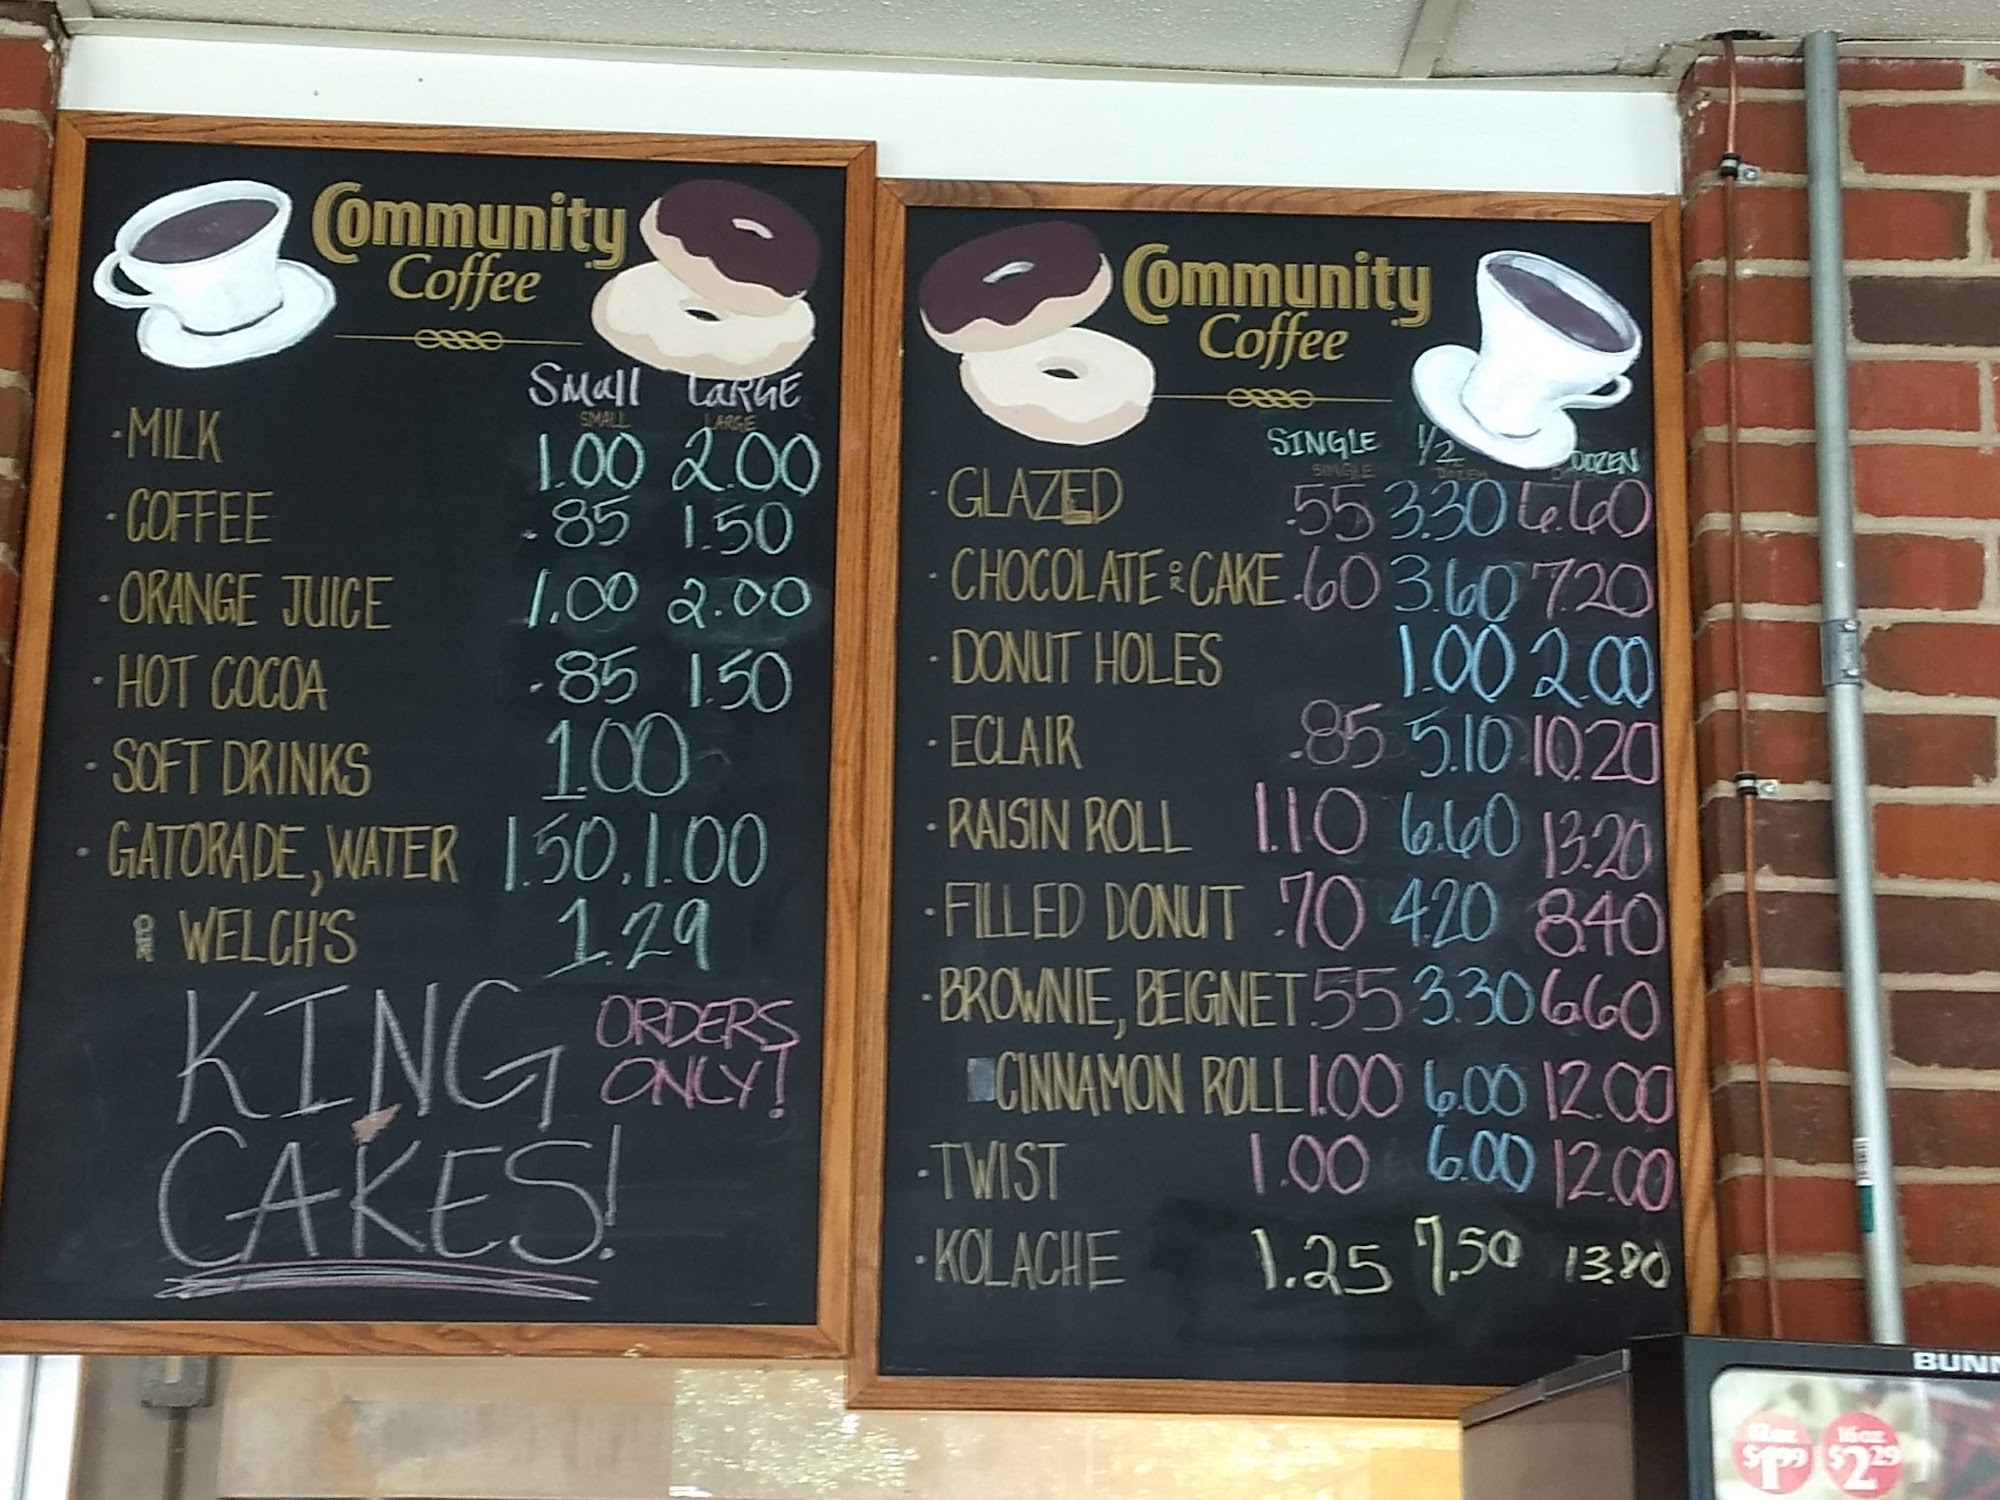 Community
Coffee
Small LARGE
SMALL LARGE
·MILK 1.00 2.00
·COFFEE .85 1.50
·ORANGE JUICE 1.00 2.00
·HOT COCOA .85 1.50
·SOFT DRINKS 1.00
·GATORADE, WATER 1.50, 1.00
OR WELCH'S 1.29
KING ORDERS
ONLY!
CAKES!
Community
Coffee
SINGLE 1/2 DOZEN
SINGLE DOZEN
·GLAZED .55 3.30 6.60
·CHOCOLATE OR CAKE .60 3.60 7.20
·DONUT HOLES 1.00 2.00
·ECLAIR .85 5.10 10.20
·RAISIN ROLL 1.10 6.60 13.20
·FILLED DONUT .70 4.20 8.40
·BROWNIE, BEIGNET .55 3.30 6.60
CINNAMON ROLL 1.00 6.00 12.00
·TWIST 1.00 6.00 12.00
·KOLACHE 1.25 7.50 13.80
BUNN
12oz $1.99
16oz $2.29